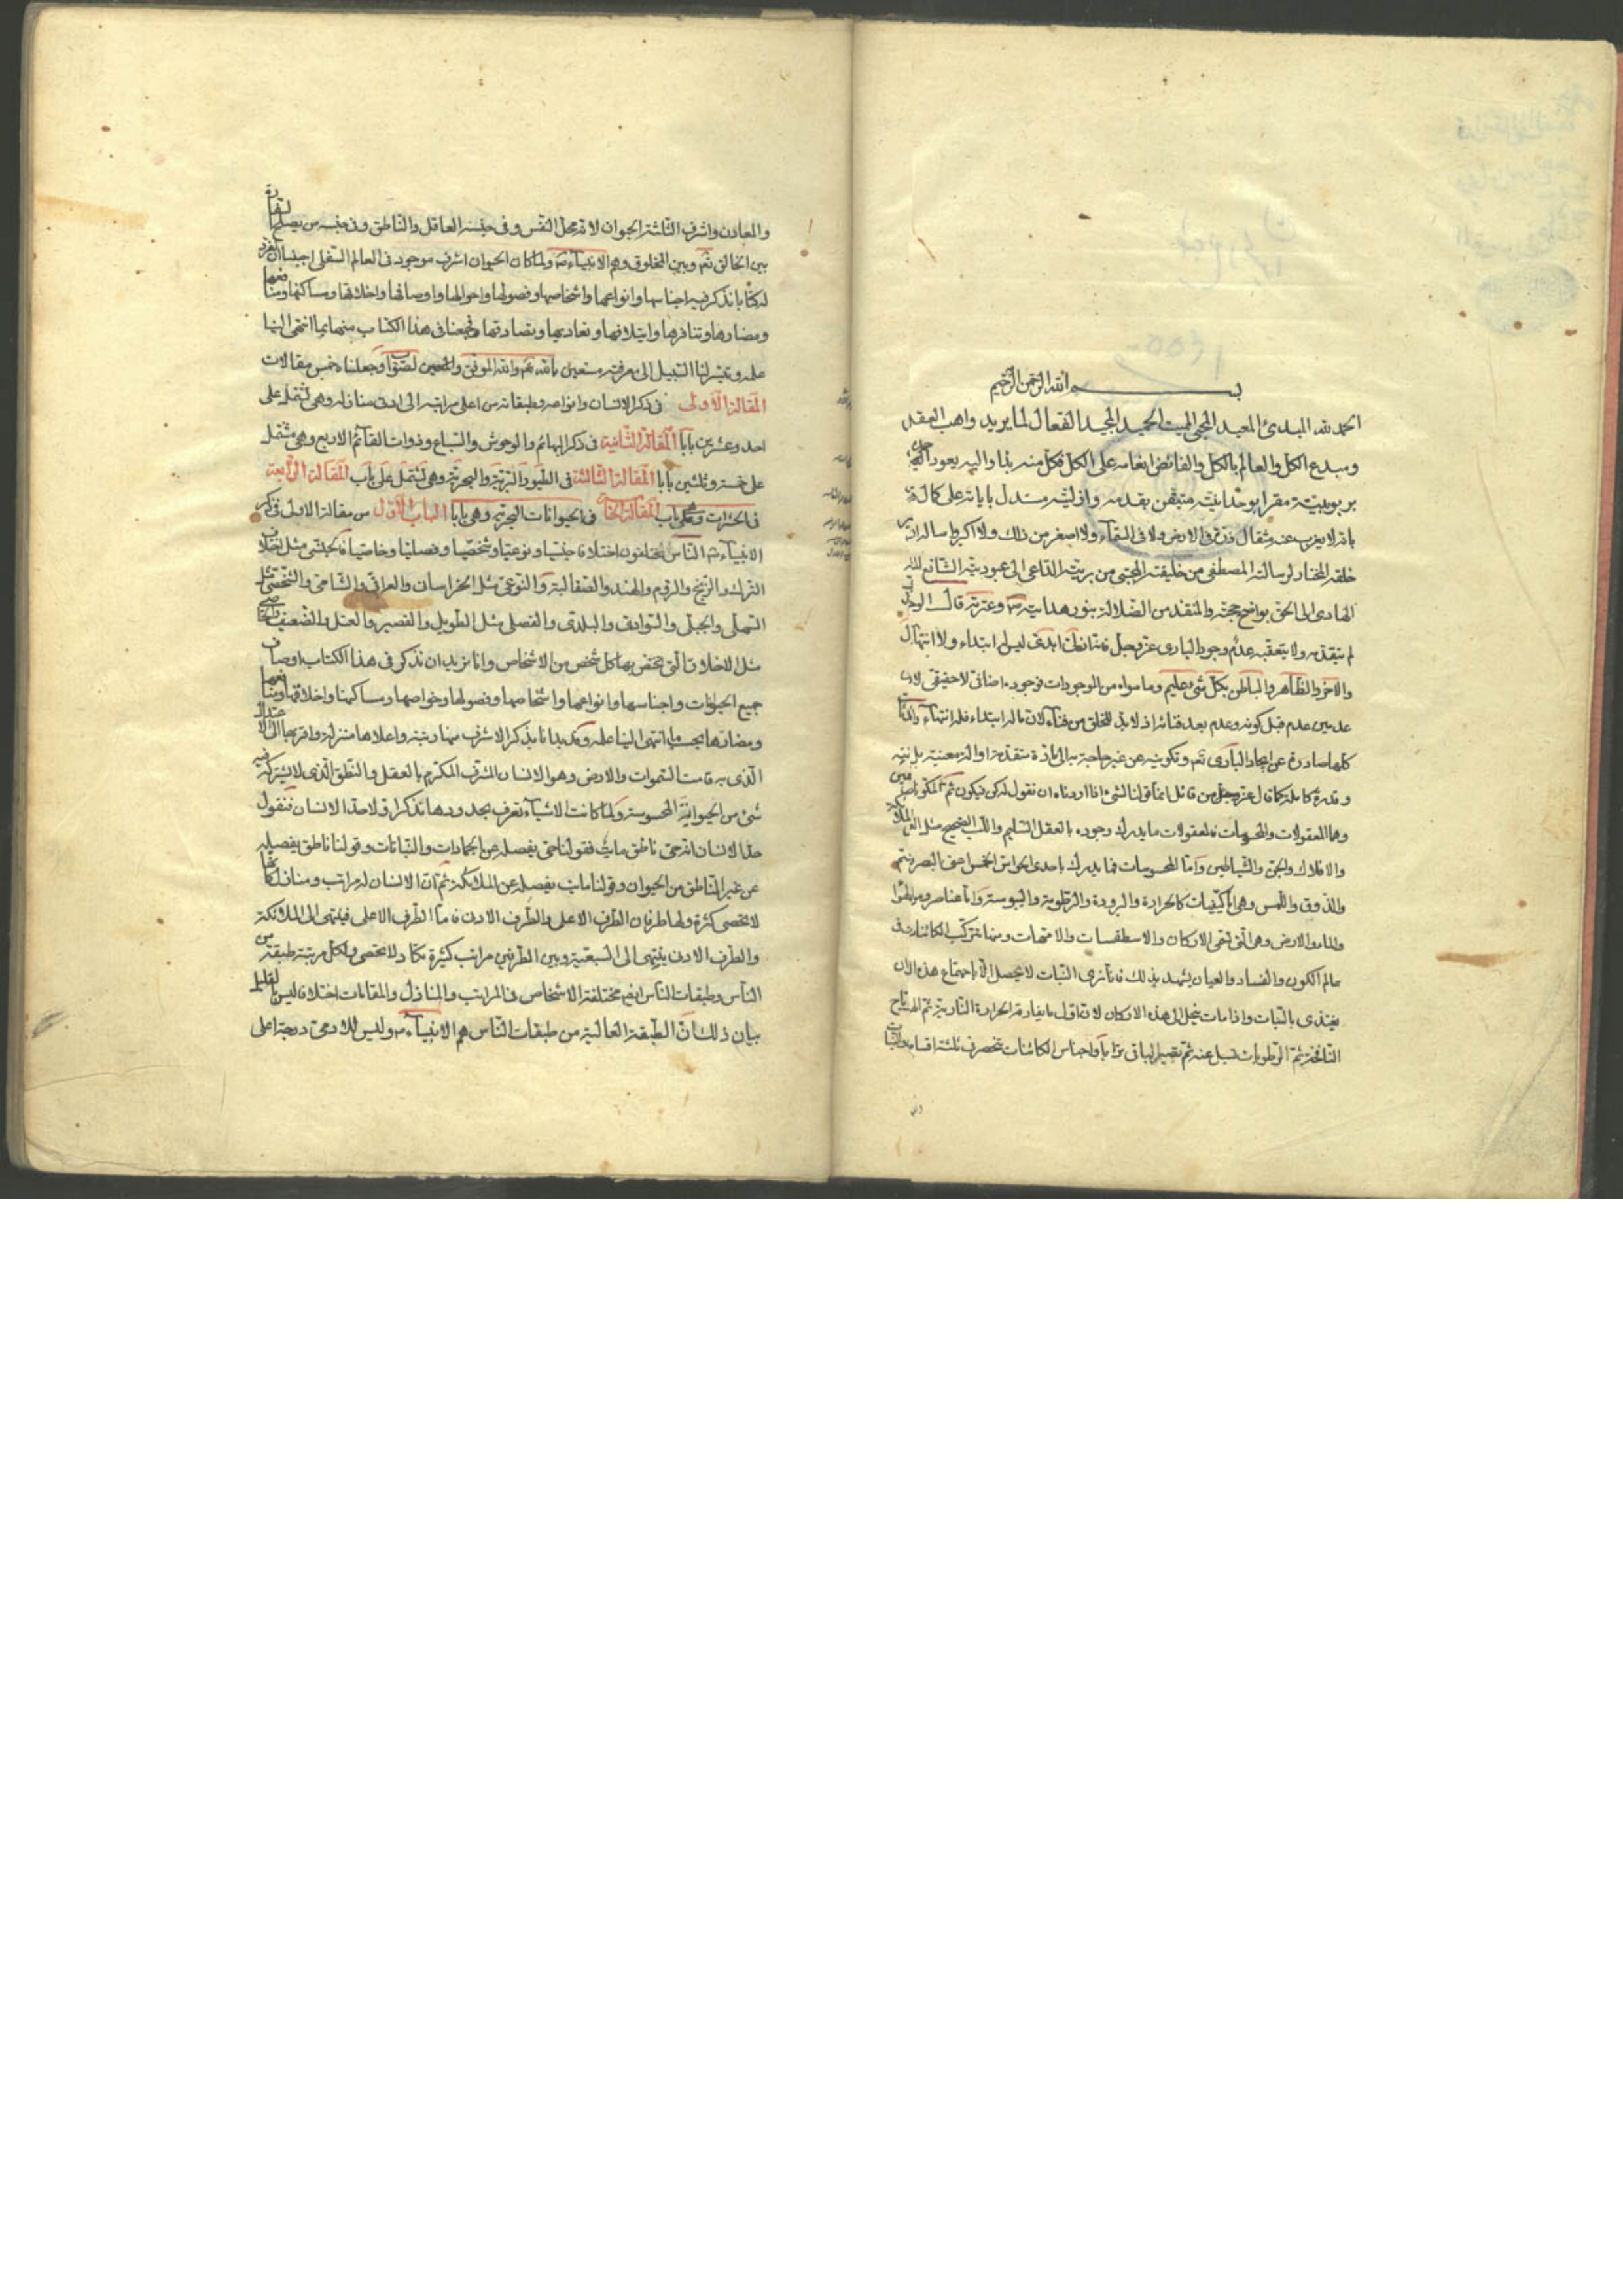 بسم الله الرحمن الرحيم
الحمد لله المبدئ المعيد المحيي المميت الحميد المجيد الفعال لما يريد واهب العقل
ومبدع الكل والعالم بالكل والفائض انعامه على الكل فكل منه بدا واليه يعود
بربوبيته مقرا بوحدانيته متيقن بقدمه وازليته مستدل باياته على كماله
بانه لا يعزب عنه مثقال ذرة في الارض ولا في السماء ولا اصغر من ذلك ولا اكبر
خلقه المختار لرسالته المصطفى من خليقته المجتبى من بريته الداعي الى عبوديته الشافع
الهادي الى الحق بواضح حجته والمنقذ من الضلالة بنور هدايته وعترته قال
لم يتقدمه ولا يتعقبه عدم وجود الباري عز وجل ليس له ابتداء ولا انتهاء
والاخر والظاهر والباطن بكل شئ عليم وما سواه من الموجودات فوجوده اضافي لا حقيقي لان
عدمين عدم قبل كونه وعدم بعد فنائه اذ لا بد للخلق من فناء لان ما له ابتداء فله انتهاء
كلها صادرة عن ايجاد الباري تع وتكوينه عن غير حاجة به الى مادة متقدمة او الة معينة بل
وقدرة كاملة كما قال عز وجل من قائل انما قولنا لشئ اذا اردناه ان نقول له كن فيكون ثم
وهما المعقولات والمحسوسات فالمعقولات ما يدرك وجوده بالعقل السليم واللب الصحيح مثل
والافلاك والجن والشياطين واما المحسوسات فما يدرك باحدى الحواس الخمس اعني البصر
والذوق واللمس وهي اما كيفيات كالحرارة والبرودة والرطوبة واليبوسة واما عناصر
والماء والارض وهي التي تسمى الاركان والاسطقسات والامهات ومنها تتركب الكائنات في
عالم الكون والفساد والعيان يشهد بذلك فانا نرى النبات لا يحصل الا باجتماع هذه
يغتذى بالنبات واذا مات ينحل الى هذه الاركان لان اول ما يفارقه الحرارة النارية ثم
ثم الرطوبات تسيل عنه ثم يصير الباقي ترابا واجناس الكائنات تنحصر في ثلثة اقسام
والمعادن واشرف الثلثة الحيوان لانه محل النفس وفي جنسه العاقل والناطق وفي جنسه من يصلح
بين الخالق تع وبين المخلوق وهم الانبياء ولما كان الحيوان اشرف موجود في العالم السفلي
له كتابا نذكر فيه اجناسها وانواعها واشخاصها وفصولها واحوالها واوصافها واخلاقها ومساكنها ومنافعها
ومضارها وتنافرها وايتلافها وتعاديها وتصادقها فجمعنا في هذا الكتاب منها ما انتهى الينا
علمه وتيسر لنا السبيل الى معرفته مستعين بالله تع والله الموفق والمعين وجعلناه خمس مقالات
المقالة الاولى في ذكر الانسان وانواعه وطبقاته من اعلى مراتبه الى ادنى منازله وهي تشتمل على
احد وعشرين بابا المقالة الثانية في ذكر البهائم والوحوش والسباع وذوات القائم الاربع وهي مشتمل
على خمسة وثلثين بابا المقالة الثالثة في الطيور البرية والبحرية وهي تشتمل على باب المقالة الرابعة
في الحشرات وهي باب المقالة الخامسة في الحيوانات البحرية وهي بابا الباب الاول من مقالة الاولى في ذكر
الانبياء الناس مختلفون اختلافا جنسيا ونوعيا وشخصيا وفصليا وخاصيا فالجنسي مثل
الترك والزنج والروم والهند والصقالبة والنوعي مثل الخراسان والعراقي والشامي والشخصي
السهلي والجبلي والبلدي والفصلي مثل الطويل والقصير والضعيف
مثل الاخلاق التي يختص بها كل شخص من الاشخاص وانا نريد ان نذكر في هذا الكتاب اوصاف
جميع الحيوانات واجناسها وانواعها واشخاصها وفصولها وخواصها ومساكنها واخلاقها ومنافعها
ومضارها بحسب ما انتهى الينا علمه بذكر الاشرف منها رتبة واعلاها منزلة واقربها الى الاعتدال
الذي به قامت السموات والارض وهو الانسان المشرف المكرم بالعقل والنطق الذي لا يشركه فيه
شئ من الحيوانية المحسوسة ولما كانت الاشياء تعرف بحدودها نذكر اولا حد الانسان فنقول
حد الانسان انه حي ناطق مايت فقولنا حي يفصله عن الجمادات والنباتات وقولنا ناطق يفصله
عن غير الناطق من الحيوان وقولنا مايت يفصله عن الملائكة ثم ان الانسان له مراتب ومنازل
لا تحصى كثرة ولها طرفان الطرف الاعلى والطرف الادنى فاما الطرف الاعلى فينتهي الى الملائكة
والطرف الادنى ينتهي الى السبعية وبين الطرفين مراتب كثيرة تكاد لا تحصى ولكل مرتبة طبقة من
الناس وطبقات الناس ايضا مختلفة الاشخاص في المراتب والمنازل والمقامات اختلافا ليس بالقليل
بيان ذلك ان الطبقة العالية من طبقات الناس هم الانبياء وليس للادمي درجة اعلى